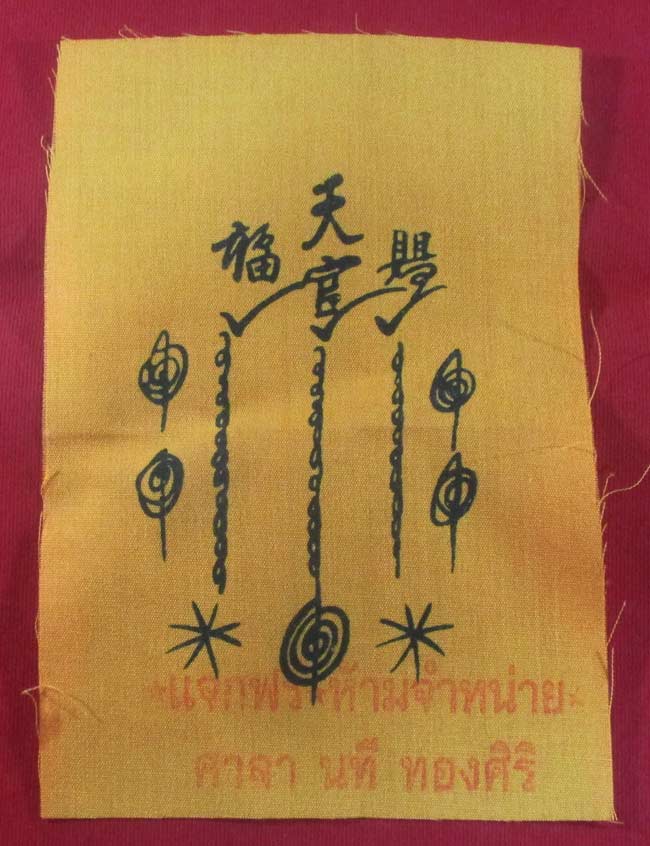 天
福 官 賜
*แจกฟรี*ห้ามจำหน่าย*
ศาลา นที ทองศิริ